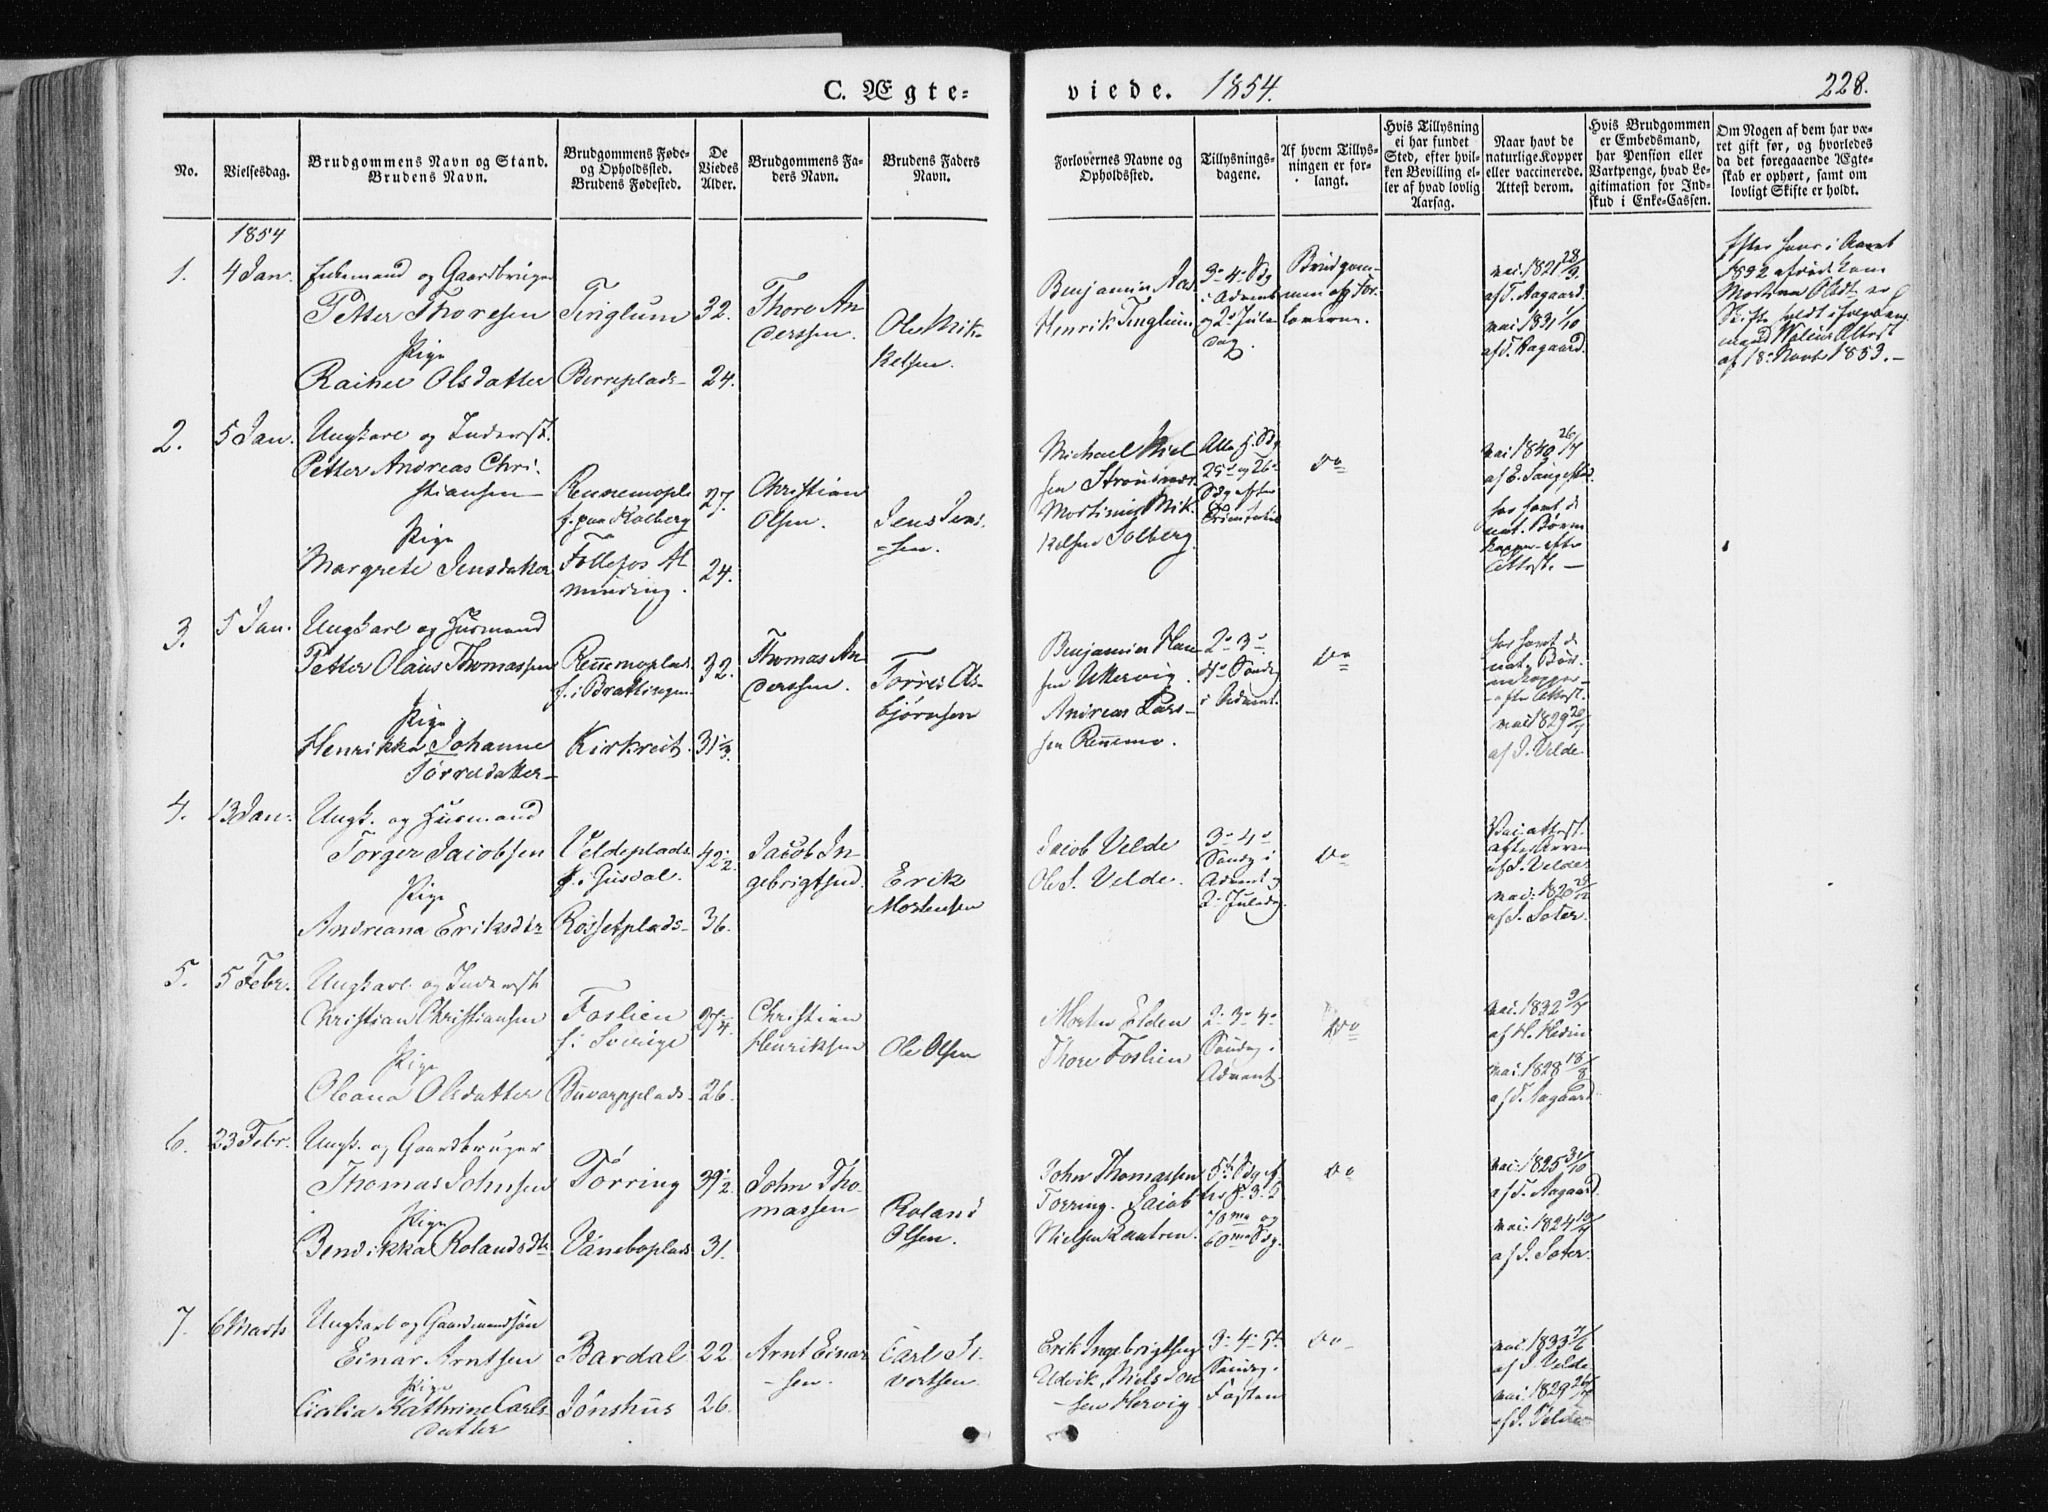 C. Ægte-
viede. 1854.
228.
No.
Vielsesdag.
Brudgommens Navn og Stand.
Brudens Navn.
Brudgommens Føde-
og Opholdssted.
Brudens Fødested.
De
Viedes
Alder.
Brudgommens Fa-
ders Navn.
Brudens Faders
Navn.
Forlovernes Navne og
Opholdssted.
Tillysnings-
dagene.
Af hvem Tillys-
ningen er for-
langt.
Hvis Tillysning
ei har fundet
Sted, efter hvil-
ken Bevilling el-
ler af hvad lovlig
Aarsag.
Naar havt de
naturlige Kopper
eller vaccinerede.
Attest derom.
Hvis Brudgommen
er Embedsmand,
har Pension eller
Vartpenge, hvad Le-
gitimation for Ind-
skud i Enke-Cassen.
Om Nogen af dem har væ-
ret gift før, og hvorledes
da det foregaaende Ægte-
skab er ophørt, samt om
lovligt Skifte er holdt.
1854
1.
4 Jan.
Enkemand og Gaardbruger
Petter Thoresen
Pige
Rachel Olsdatter
Tinglum
Berreplads
32.
24.
Thore An
derssen.
Ole Mik-
kelsen.
Benjamin Aas
Henrik Tinglum
3- 4- Sdg
i Advent
og 2- Jule
dag.
Brudgom-
men og For-
loverne.
vac. 1821 28/9
af T. Aagaard.
vac. 1831 1/10
af T. Aagaard.
af 18 Novbr 1853.
2.
5 Jan.
Ungkarl og Inderst.
Petter Andreas Chri-
stiansen
Pige
Margrete Jensdatter
Rennemopl
f. paa Kolberg
Follefos Al
minding.
27.
24.
Christian
Olsen.
Jens Jens
-sen.
Michael Niel
sen
Mortinus Mik
kelsen Solberg.
25- og 26-
Sdg efter
Trinitatis
Do
vac. 1840 26/7
har havt de
nat. Børn
kopper efter
Attest.
3.
5 Jan.
Ungkarl og Husmand
Petter Olaus Thomassen
Pige
Henrikka Johanne
Tørresdatter
Rennemoplads
f. i Brattingen
Kirkreit.
32.
31 1/3.
Thomas An
derssen.
Torris As-
bjørnsen
Benjamin Han
sen Utkervig.
Andreas Lars-
sen Rennemo.
2- 3-
4- Søndg
i Advent.
Do
har havt de
nat. Bør-
nekopper
efter Attest.
vac. 1829 20/7
af J. Velde.
4.
13 Jan.
Ungk. og Husmand
Torger Jacobsen
Pige
Andreana Eriksdtr
Veldeplads
f. i Gusdal.
Rossetplads
42 1/2
36.
Jacob In-
gebrigtsen.
Erik
Mortensen
Jacob Velde
Ole J. Velde.
3- 4-
Søndg i
Advent og
2- Juledg.
Do
af J. Velde
vac. 1820
af J. Soter.
5.
5 Febr.
Ungkarl og Inderst
Christian Christiansen
Pige
Oleana Olsdatter
Foslien
f. i Sverige
Buvarpplads
27 1/4.
26.
Christian
Henriksen
Ole Olsen
Morten Elden
Thore Foslien
2- 3- 4-
Søndg i
Advent.
Do
vac. 1832 9/7
af H. Hedin
vac. 1828 18/8
af T. Aagaard
6.
23 Febr.
Ungk. og Gaardbruger
Thomas Johnsen
Pige
Bendikka Rolandsdtr
Tørring
Vaneboplads
39 1/2.
31.
John Tho-
massen
Roland
Olsen.
John Thomassen
Torring. Jacob
Nielsen
70me og
60me Sdg.
Do
vac. 1825 31/10
af T. Aagaard.
vac. 1824 10/7
af J. Soter.
7.
6 Marts
Ungkarl og Gaardmandsøn
Einar Arntsen
Pige
Cicilia Kathrine Carls
datter
Bardal
Jønshus
22
26.
Arnt Einar
-sen.
Carl Si-
vertsen.
Erik Ingebrigtsen
Utvik. Niels Jon
-sen Hervig
3- 4- 5t
Søndg i
Fasten
Do
vac. 1833 7/6
af J. Velde
vac. 1829 26/7
af J. Velde